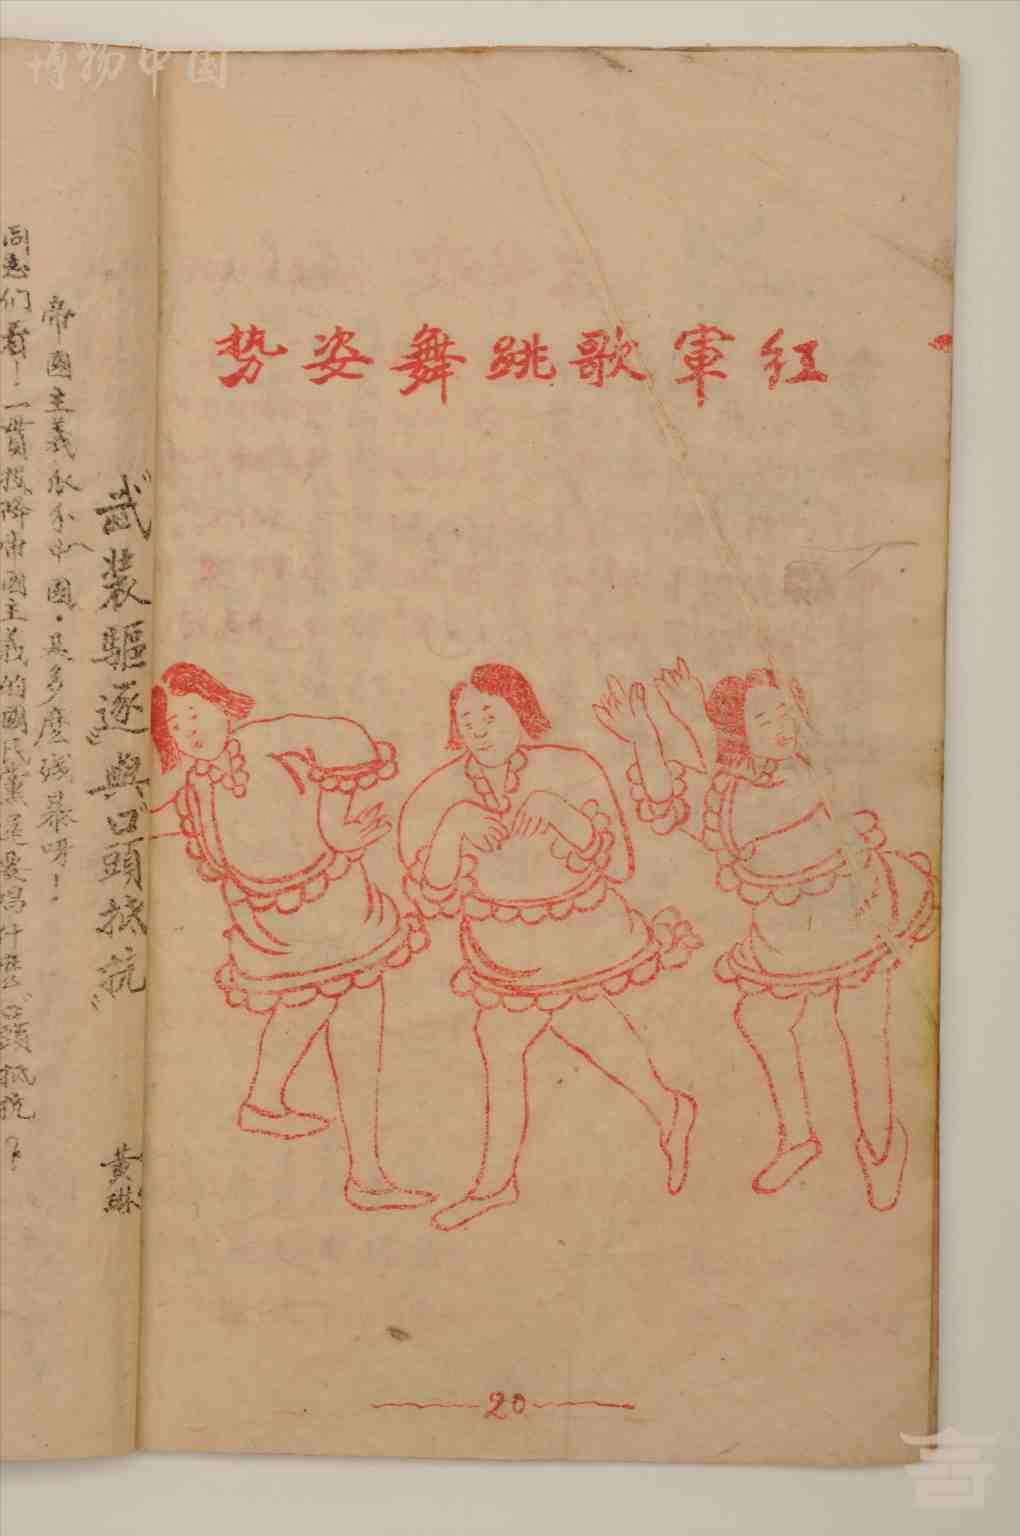 博物中国
红軍歌跳舞姿势
“武装驅逐”與“口頭抵抗”
黄琳
帝國主義瓜分中國．是多麼残暴呀！
同志们看！一貫投降帝國主義的國民黨還要唱什麽“口頭抵抗”
20